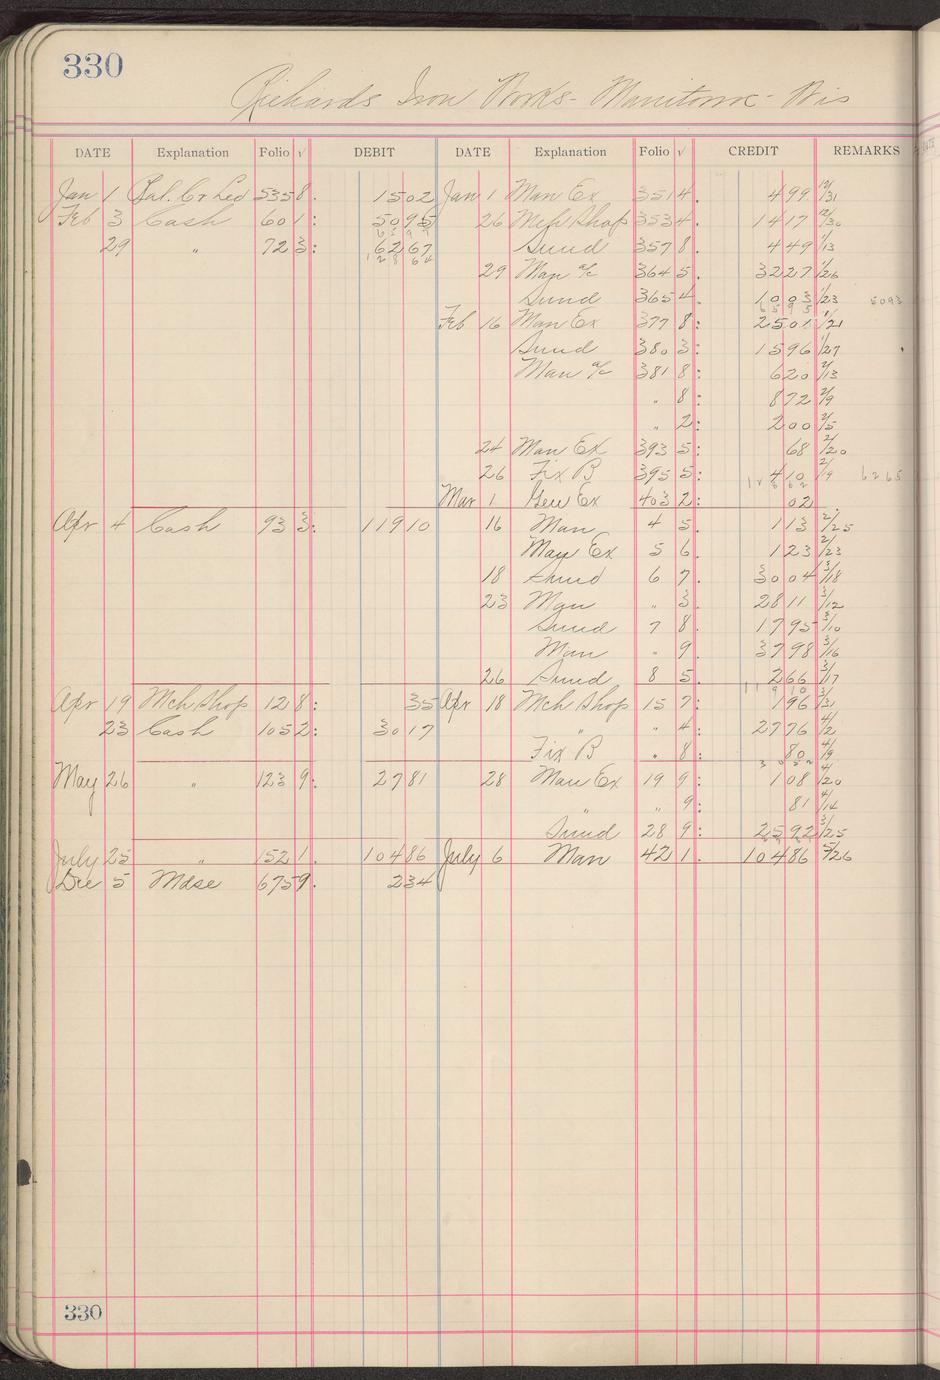 330
Richards Iron Works - Manitowoc - Wis
DATE Explanation Folio √ DEBIT DATE Explanation Folio √ CREDIT REMARKS
Jan 1 Bal. Cr Led 535 8. 15 02 Jan 1 Man Ex 351 4. 4 99 12/31
Feb 3 Cash 60 1: 50 95 26 Mch Shop 353 4. 14 17 12/30
65 97
29 " 72 3: 62 67 Sund 357 8. 4 49 1/13
128 64
29 Man a/c 364 5. 32 27 1/26
Sund 365 4. 10 03 1/23 5093
65 95
Feb 16 Man Ex 377 8: 25 01 1/21
Sund 380 3: 15 96 1/27
Man a/c 381 8: 6 20 2/13
" 8: 8 72 2/9
" 2: 2 00 2/5
24 Man Ex 393 5: 68 2/20
26 Fix B 395 5: 4 10 2/9 6265
128 62
Mar 1 Gen Ex 403 2: 02
Apr 4 Cash 93 3: 119 10 16 Man 4 5. 1 13 2/25
Man Ex 5 6. 1 23 2/23
18 Sund 6 7. 30 04 3/18
23 Man " 3. 28 11 3/12
Sund 7 8. 17 95 3/10
Man " 9. 37 98 3/16
26 Sund 8 5. 2 66 3/17
119 10
Apr 19 Mch Shop 12 8: 35 Apr 18 Mch Shop 15 7: 1 96 3/31
23 Cash 105 2: 30 17 " " 4: 27 76 4/2
Fix B " 8: 80 4/9
30 52
May 26 " 123 9: 27 81 28 Man Ex 19 9: 1 08 4/20
" " 9: 81 4/14
Sund 28 9: 25 92 3/25
July 25 " 152 1. 104 86 July 6 Man 42 1. 104 86 5/26
Dec 5 Mdse 675 9. 2 34
330